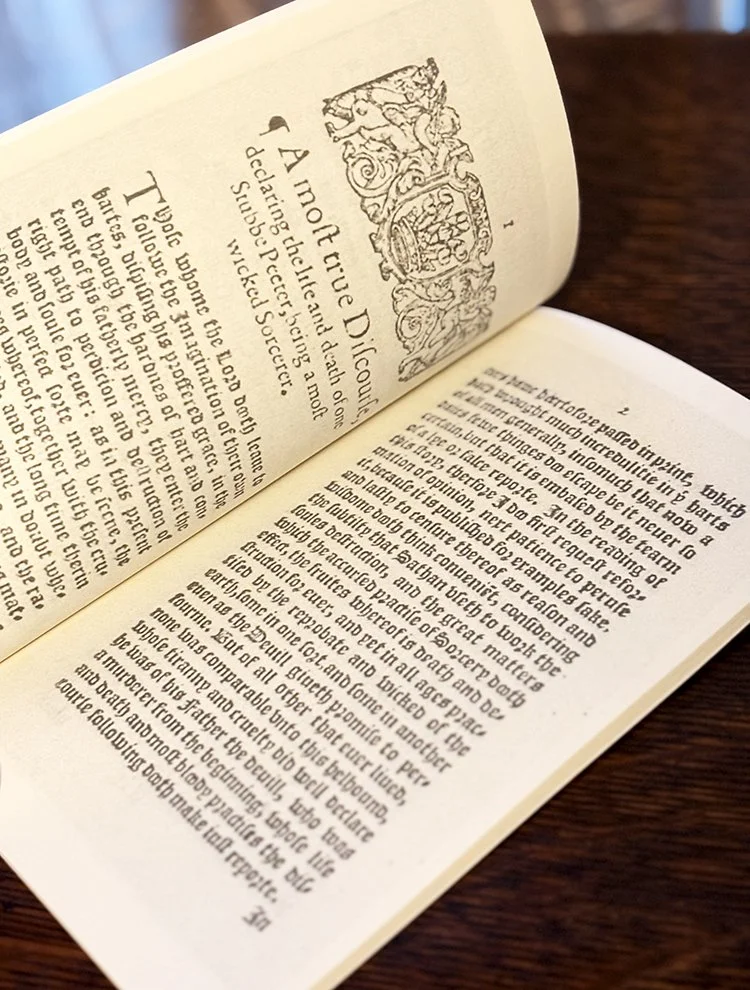 1
¶ A moſt true Diſcourſe,
declaring the life and death of one
Stubbe Peeter, being a moſt
wicked Sorcerer.
Thoſe whome the Lord dooth leaue to
followe the Imagination of their own
hartes, diſpiſing his proffered grace, in the
end through the hardnes of hart and con-
tempt of his fatherly mercy, they enter the
right path to perdicion and deſtruction of
body and ſoule for euer: as in this preſent
in perfect ſorte may be ſeene, the
whereof, together with the cru-
and the long time therin
many in doubt whe-
and the ra-
mat-
2
ters haue heertofore paſſed in print, which
hath wrought much incredulitie in yͤ harts
of all men generally, inſomuch that now a
daies fewe thinges doo eſcape be it neuer ſo
certain, but that it is embaſed by the tearm
of a lye or falce reporte. In the reading of
this ſtory, therfore I doo firſt requeſt refor-
mation of opinion, next patience to peruſe
it, becauſe it is publiſhed for examples ſake,
and laſtly to cenſure thereof as reaſon and
wiſdome dooth think conuenient, conſidering
the ſubtilty that Sathan vſeth to work the
ſoules deſtruction, and the great matters
which the accurſed practiſe of Sorcery dooth
effect, the fruites whereof is death and de-
ſtruction for euer, and yet in all ages prac-
tiſed by the reprobate and wicked of the
earth, ſome in one ſort and ſome in another
euen as the Deuill giueth promiſe to per-
fourme. But of all other that euer liued,
none was comparable vnto this helhound,
whoſe tiranny and cruelty did well declare
he was of his Father the deuill, who was
a murderer from the beginning, whoſe life
and death and moſt bloody practiſes the diſ-
courſe following dooth make iuſt reporte.
In